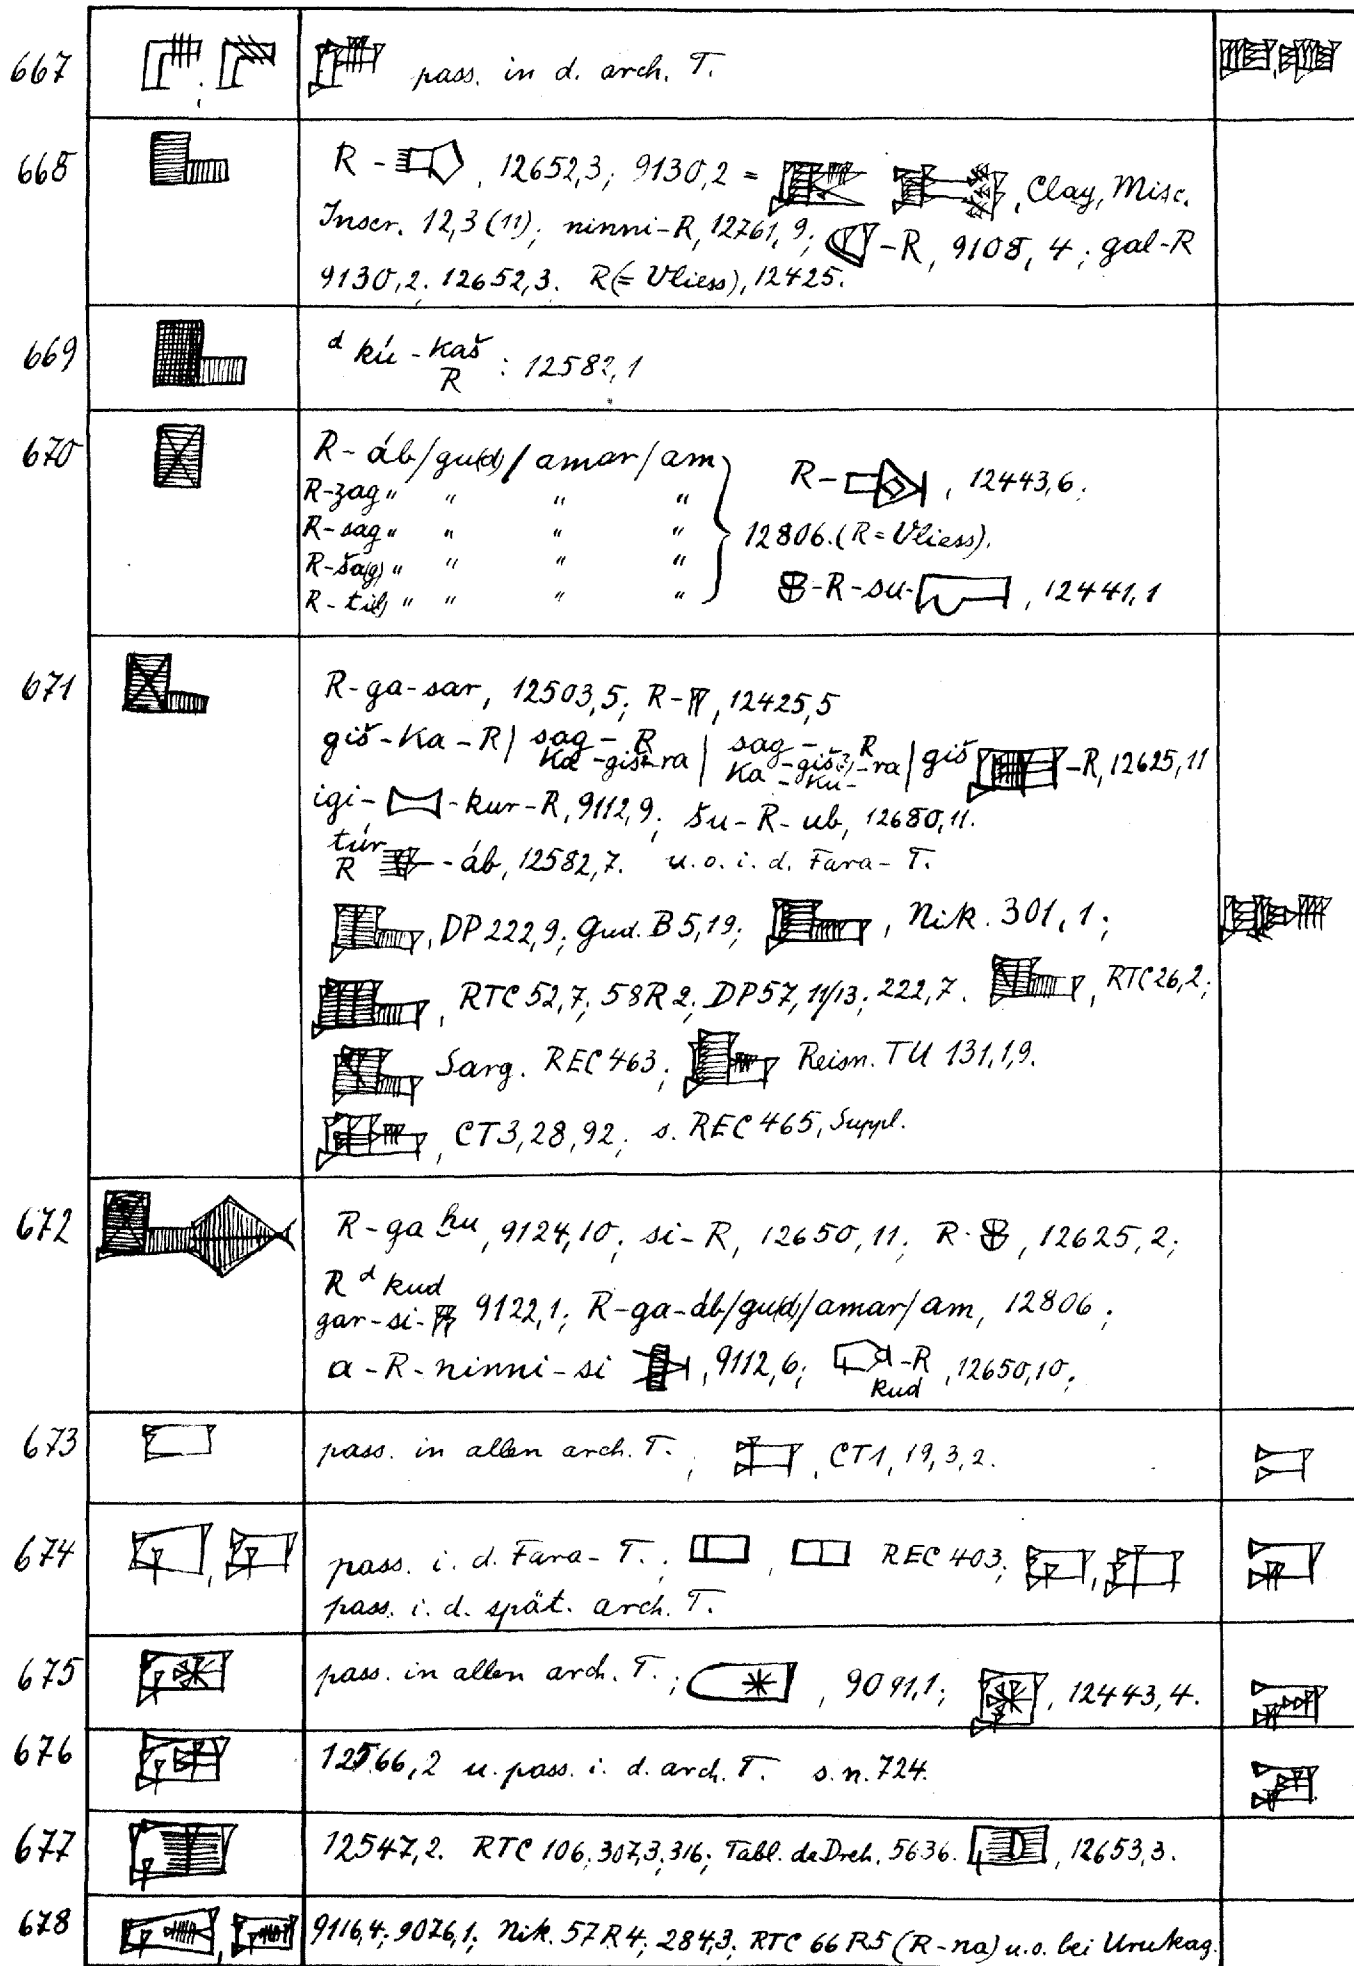 667 pass. in d. arch. T.
668 R - , 12652,3; 9130,2 = , Clay, Misc.
Inscr. 12,3 (11); ninni-R, 12761,9; -R, 9108,4; gal-R
9130,2. 12652,3. R (= Vliess), 12425.
669 d kú - kaš : 12582,1
R
670 R - áb/gu(d)/amar/am
R-zag " " " " R- , 12443,6.
R-sag " " " " 12806. (R = Vliess).
R-ša(g) " " " "
R-til " " " " -R-su- , 12441,1
671 R-ga-sar, 12503,5; R- , 12425,5
giš-Ka-R | sag - R | sag - R | giš -R, 12625,11
Ka-giš-ra Ka-giš-ra
-ku-
igi- -kur-R, 9112,9; šu-R-ub, 12680,11.
túr
R -áb, 12582,7. u.o.i.d. Fara-T.
, DP 222,9; Gud. B 5,19; , Nik. 301,1;
, RTC 52,7; 58 R 2; DP 57,11/13; 222,7. , RTC 26,2;
Sarg. REC 463; Reisn. TU 131,1,9.
, CT 3,28,92; s. REC 465, Suppl.
672 R-ga hu, 9124,10; si-R, 12650,11; R- , 12625,2;
R d kud
gar-si- 9122,1; R-ga-áb/gu(d)/amar/am, 12806;
a-R-ninni-si , 9112,6; -R , 12650,10;
kud
673 pass. in allen arch. T. ; , CT 1, 19, 3, 2.
674 pass. i. d. Fara-T. ; , REC 403; ,
pass. i. d. spät. arch. T.
675 pass. in allen arch. T. ; , 9091,1; , 12443,4.
676 12566,2 u. pass. i. d. arch. T. s. n. 724.
677 12547,2. RTC 106; 307,3; 316; Tabl. de Dreh. 5636. , 12653,3.
678 9116,4; 9076,1; Nik. 57 R 4; 284,3; RTC 66 R5 (R-na) u.o. bei Urukag.